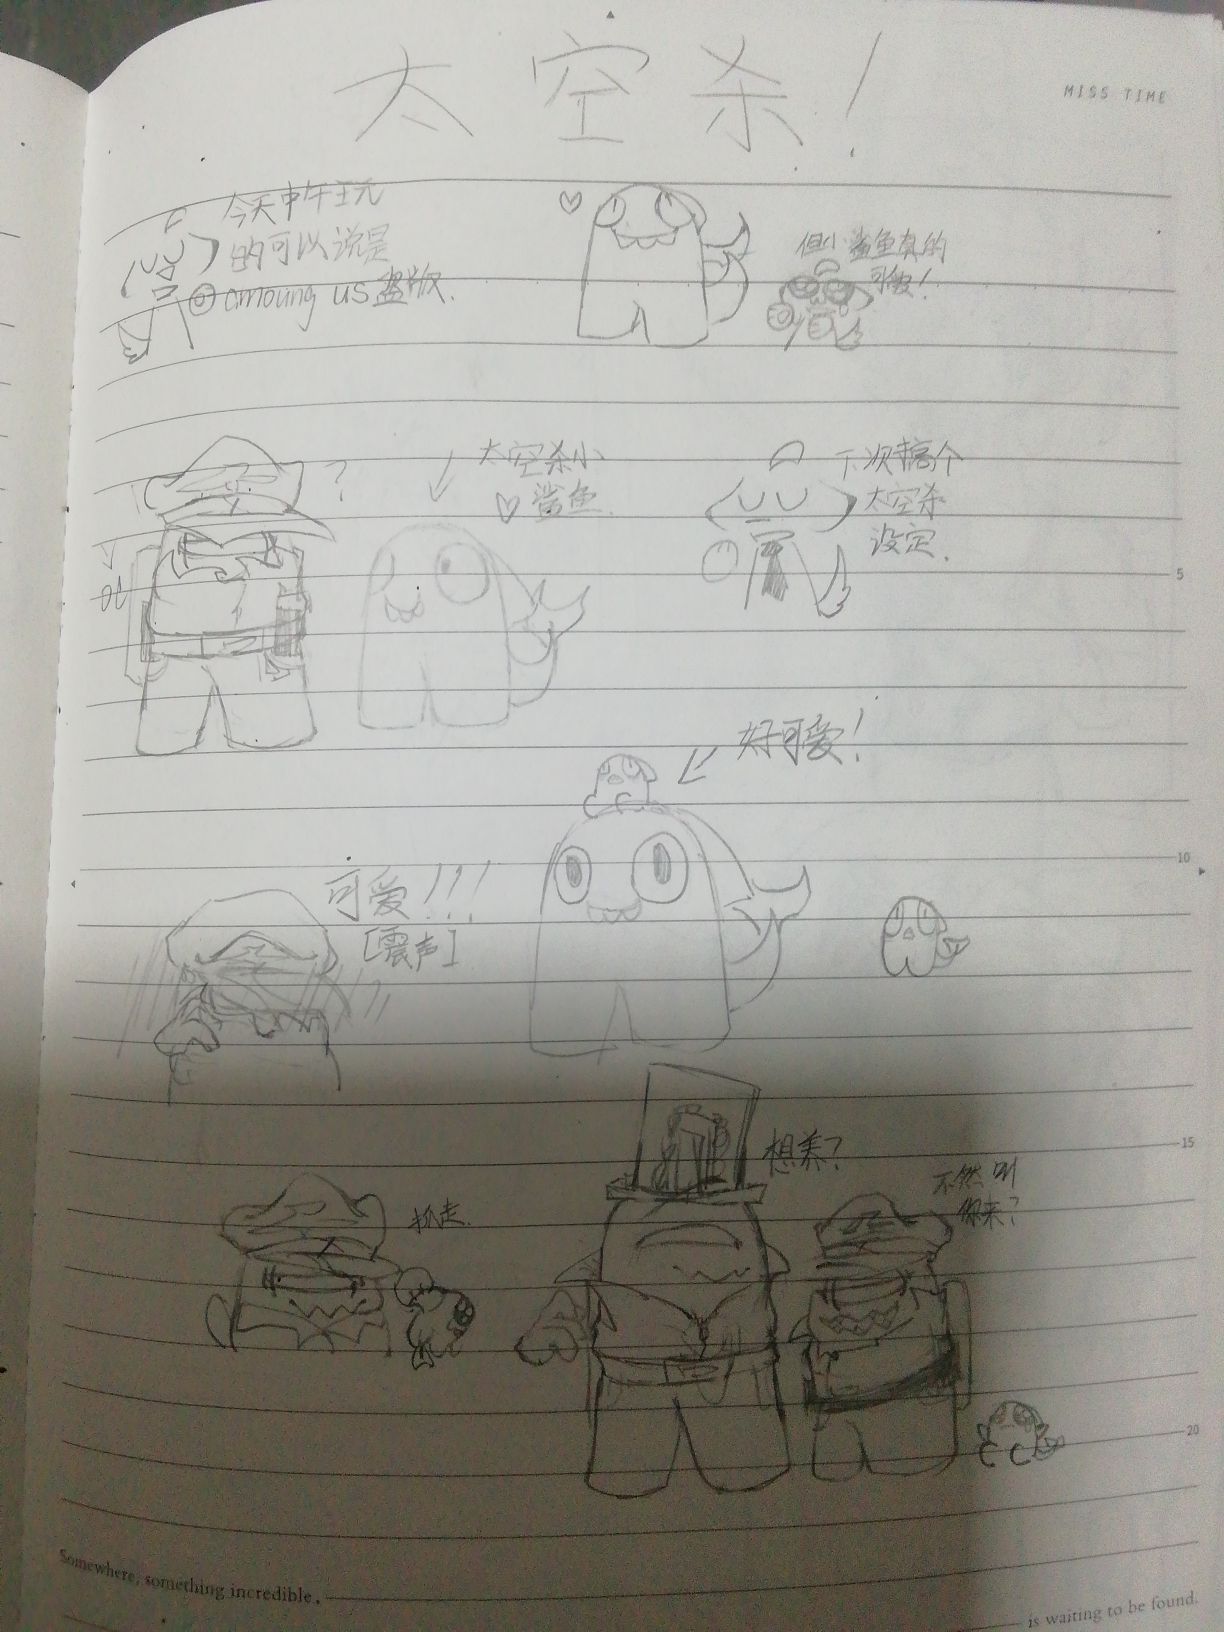 太空杀!
MISS TIME
今天中午玩
的可以说是
amoung us 盗版.
但小鲨鱼真的
可爱!
?
太空杀小
♡鲨鱼.
下次搞个
太空杀
设定.
好可爱!
可爱!!!
[震声]
抓走.
想养?
不然叫
你来?
5
10
15
20
Somewhere, something incredible,
is waiting to be found.